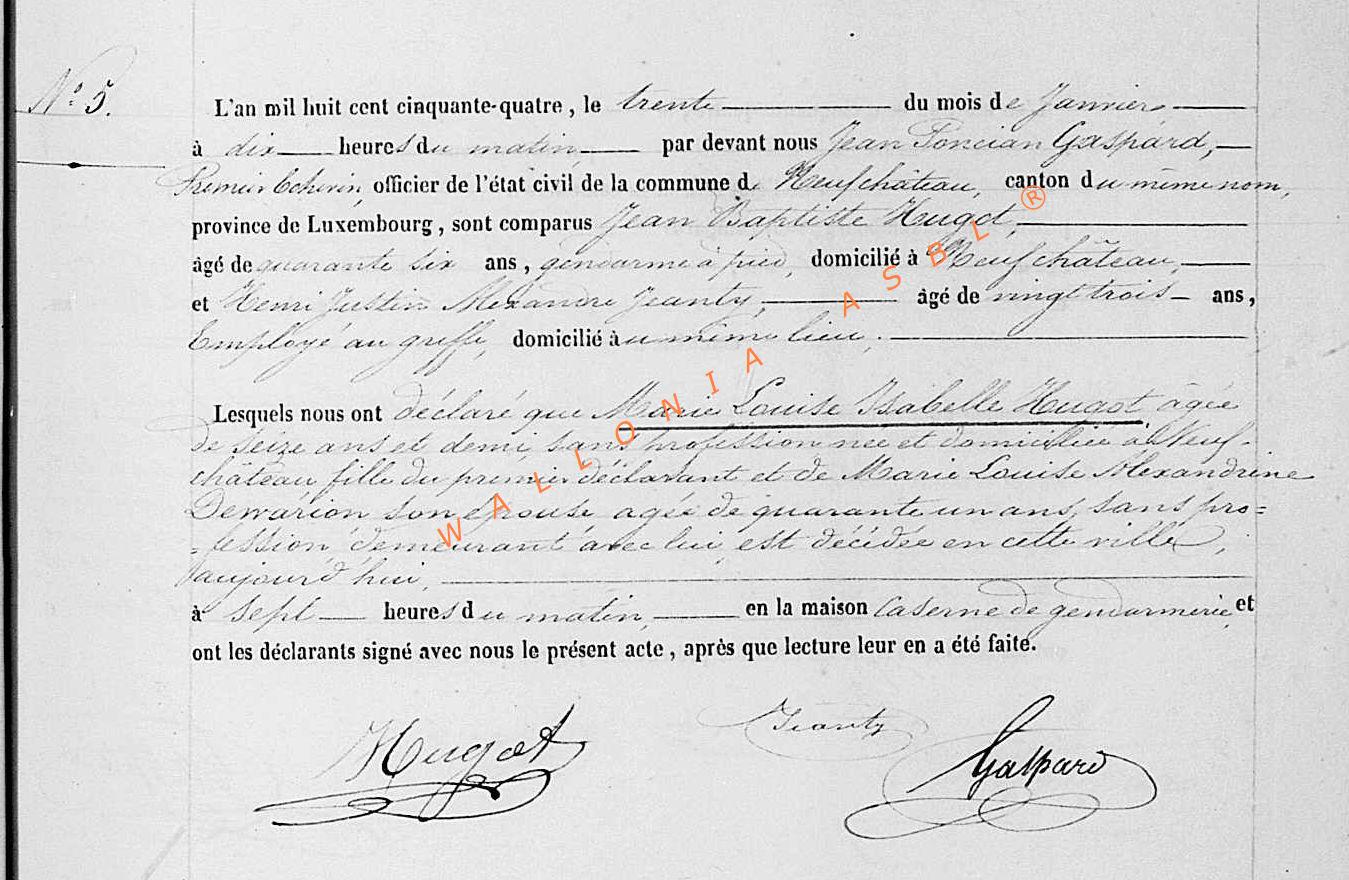 N° 5.
L'an mil huit cent cinquante-quatre, le trente du mois de Janvier
à dix heures du matin, par devant nous Jean Poncian Gaspard,
Premier Echevin, officier de l'état civil de la commune de Neufchâteau, canton du même nom,
province de Luxembourg, sont comparus Jean Baptiste Hugot,
âgé de quarante six ans, gendarme à pied, domicilié à Neufchâteau,
et Henri Justin Alexandre Jeanty, âgé de vingt trois ans,
Employé au greffe, domicilié au même lieu.
Lesquels nous ont déclaré que Marie Louise Isabelle Hugot, âgée
de seize ans et demi, sans profession née et domiciliée à Neuf-
château fille du premier déclarant et de Marie Louise Alexandrine
son épouse agée de quarante un ans, sans pro=
=fession, demeurant avec lui, est décédée en cette ville,
aujourd'hui,
à sept heures du matin, en la maison Caserne de gendarmerie, et
ont les déclarants signé avec nous le présent acte, après que lecture leur en a été faite.
Hugot Jeanty Gaspard
WALLONIA ASBL ®